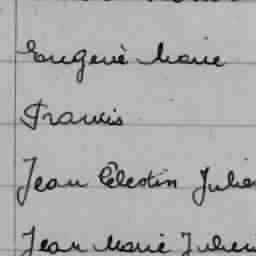 Eugenè Marie
Francis
Jean Célestin Julie
Jean Marie Julien